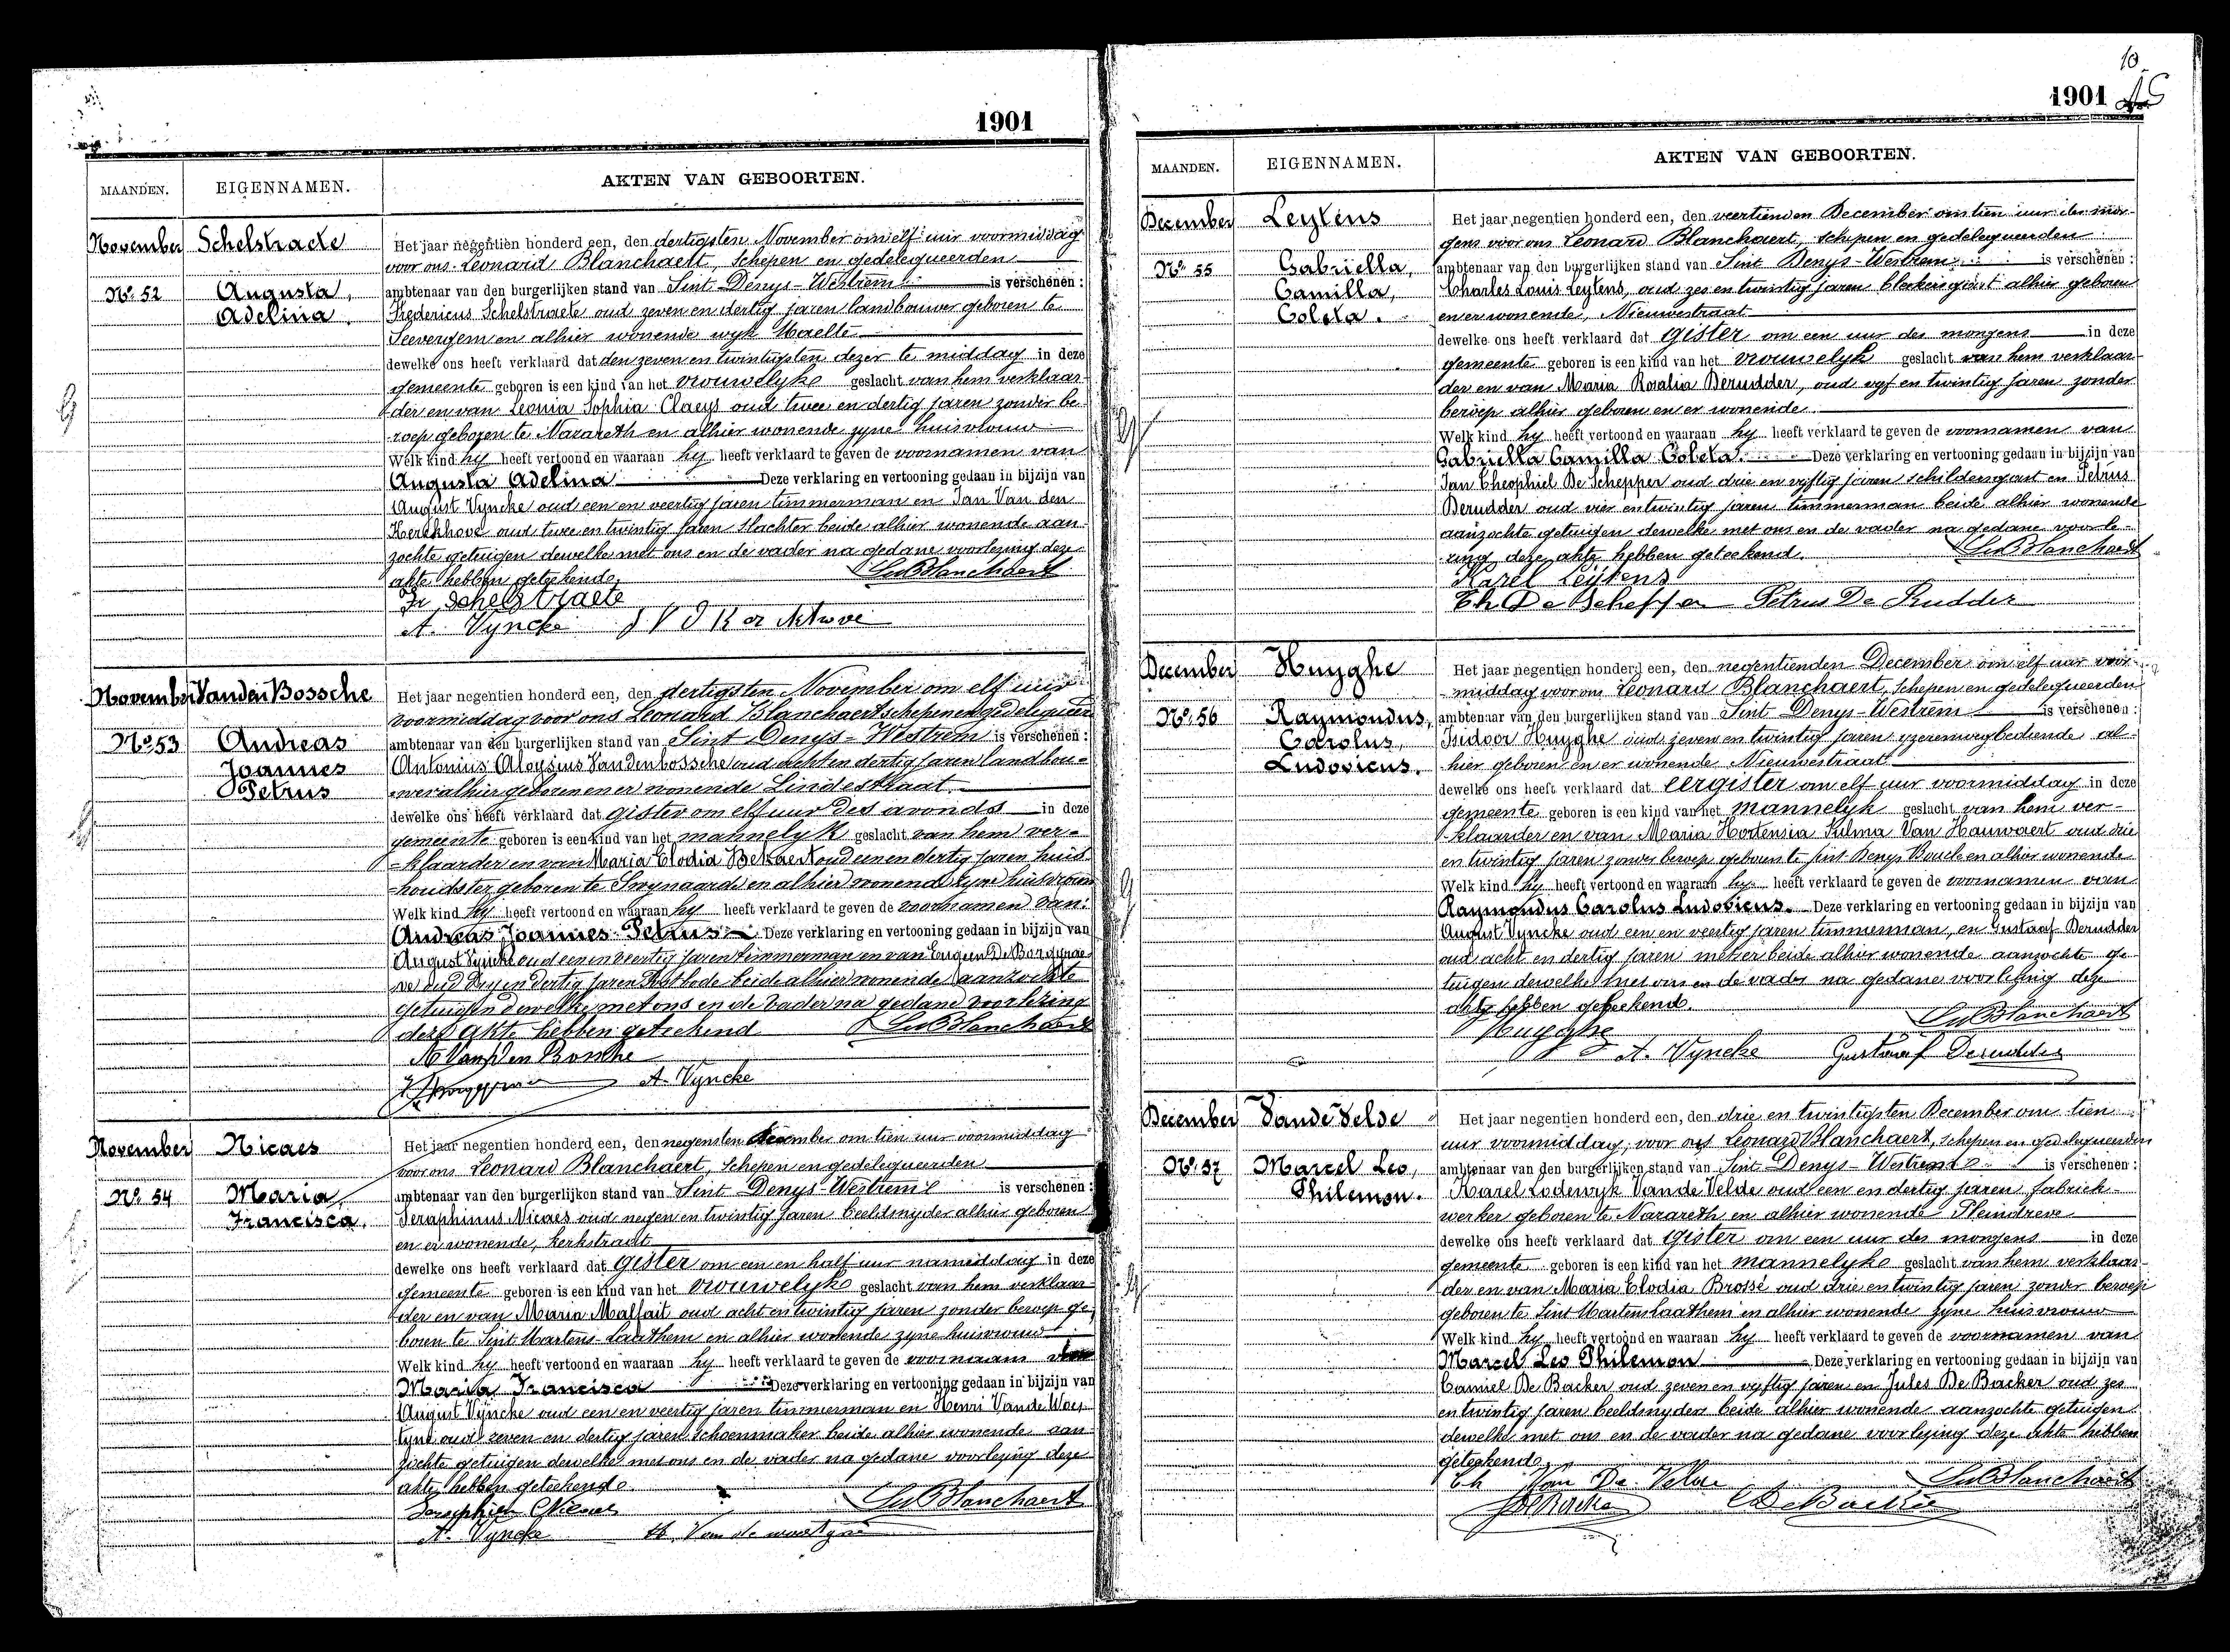 1901
MAANDEN. EIGENNAMEN. AKTEN VAN GEBOORTEN.
November Schelstraete
Nº 52 Augusta,
Adelina.
Het jaar negentien honderd een, den dertigsten November om elf uur voormiddag
voor ons Leonard Blanchaert, Schepen en gedelegueerden
ambtenaar van den burgerlijken stand van Sint Denys-Westrem is verschenen :
Fredericus Schelstraete oud zeven en dertig jaren landbouwer geboren te
Seevergem en alhier wonende wyk Maelte
dewelke ons heeft verklaard dat den zeven en twintigsten dezer te middag in deze
gemeente geboren is een kind van het vrouwelyke geslacht van hem verklaar-
der en van Leonia Sophia Claeys oud twee en dertig jaren zonder be-
roep geboren te Nazareth en alhier wonende zyne huisvrouw
Welk kind hy heeft vertoond en waaraan hy heeft verklaard te geven de voornamen van
Augusta Adelina Deze verklaring en vertooning gedaan in bijzijn van
August Vyncke oud een en veertig jaren timmerman en Jan Van den
Kerckhove oud twee en twintig jaren slachter beide alhier wonende aan-
zochte getuigen dewelke met ons en de vader na gedane voorlezing deze
akte hebben geteekend. Leo Blanchaert
Fr Schelstraete
A. Vyncke J V D Kerckhove
November Vanden Bossche
Nº 53 Andreas
Joannes
Petrus
Het jaar negentien honderd een, den dertigsten November om elf uur
voormiddag voor ons Leonard Blanchaert schepen en gedelegueer
ambtenaar van den burgerlijken stand van Sint Denys-Westrem is verschenen :
Antonius Aloysius Vandenbossche oud acht en dertig jaren landbou-
wer alhier geboren en er wonende Lindestraat.
dewelke ons heeft verklaard dat gister om elf uur des avonds in deze
gemeente geboren is een kind van het mannelyk geslacht van hem ver-
klaarder en van Maria Elodia Bekaert oud een en dertig jaren huis-
houdster geboren te Swynaarde en alhier wonende zyne huisvrouw
Welk kind hy heeft vertoond en waaraan hy heeft verklaard te geven de voornamen van:
Andreas Joannes Petrus. Deze verklaring en vertooning gedaan in bijzijn van
August Vyncke oud een en veertig jaren timmerman en van Eugeen De
oud dry en dertig jaren Postbode beide alhier wonende aanzochte
getuigen dewelke met ons en de vader na gedane voorlezing
deze akte hebben geteekend Leo Blanchaert
A Van Den Bossche
A. Vyncke
November Nicaes
Nº 54 Maria,
Francisca.
Het jaar negentien honderd een, den negensten December om tien uur voormiddag
voor ons Leonard Blanchaert, Schepen en gedelegueerden
ambtenaar van den burgerlijken stand van Sint Denys-Westrem is verschenen :
Seraphinus Nicaes oud negen en twintig jaren beeldsnyder alhier geboren
en er wonende, kerkstraat
dewelke ons heeft verklaard dat gister om een en half uur namiddag in deze
gemeente geboren is een kind van het vrouwelyke geslacht van hem verklaar-
der en van Maria Malfait oud acht en twintig jaren zonder beroep ge-
boren te Sint Martens-Laathem en alhier wonende zyne huisvrouw
Welk kind hy heeft vertoond en waaraan hy heeft verklaard te geven de voornaam van
Maria Francisca Deze verklaring en vertooning gedaan in bijzijn van
August Vyncke oud een en veertig jaren timmerman en Henri Vande Woes-
tyne oud zeven en dertig jaren schoenmaker beide alhier wonende aan-
zochte getuigen dewelke met ons en de vader na gedane voorlezing deze
akte hebben geteekend.
Seraphien Nicaes Leo Blanchaert
A. Vyncke H. Van de woestyne
10
1901
MAANDEN. EIGENNAMEN. AKTEN VAN GEBOORTEN.
December Leytens
Nº 55 Gabriella,
Camilla,
Coleta.
Het jaar negentien honderd een, den veertienden December om tien uur der mor-
gens voor ons Leonard Blanchaert, schepen en gedelegueerden
ambtenaar van den burgerlijken stand van Sint Denys-Westrem is verschenen :
Charles Louis Leytens, oud zes en twintig jaren bleekersgast alhier geboren
en er wonende, Nieuwestraat
dewelke ons heeft verklaard dat gister om een uur des morgens in deze
gemeente geboren is een kind van het vrouwelyk geslacht van hem verklaar-
der en van Maria Rosalia Derudder, oud vyf en twintig jaren zonder
beroep alhier geboren en er wonende.
Welk kind hy heeft vertoond en waaraan hy heeft verklaard te geven de voornamen van
Gabriella Camilla Coleta. Deze verklaring en vertooning gedaan in bijzijn van
Jan Theophiel De Schepper oud drie en vyftig jaren schildersgast en Petrus
Derudder oud vier en twintig jaren timmerman beide alhier wonende
aanzochte getuigen dewelke met ons en de vader na gedane voorle-
zing deze akte hebben geteekend. Leo Blanchaert
Karel Leytens
Th De Schepper Petrus De Rudder
December Huyghe
Nº 56 Raymondus,
Carolus,
Ludovicus.
Het jaar negentien honderd een, den negentienden December om elf uur voor-
middag voor ons Leonard Blanchaert, Schepen en gedelegueerden
ambtenaar van den burgerlijken stand van Sint Denys-Westrem is verschenen :
Isidoor Huyghe oud zeven en twintig jaren yzerenwegbediende al-
hier geboren en er wonende Nieuwestraat
dewelke ons heeft verklaard dat eergister om elf uur voormiddag in deze
gemeente geboren is een kind van het mannelyk geslacht van hem ver-
klaarder en van Maria Hortensia Zulma Van Hauwaert oud drie
en twintig jaren zonder beroep geboren te Sint Denys Boucle en alhier wonende
Welk kind hy heeft vertoond en waaraan hy heeft verklaard te geven de voornamen van
Raymondus Carolus Ludovicus. Deze verklaring en vertooning gedaan in bijzijn van
August Vyncke oud een en veertig jaren timmerman, en Gustaaf Derudder
oud acht en dertig jaren metser beide alhier wonende aanzochte ge-
tuigen dewelke met ons en de vader na gedane voorlezing deze
akte hebben geteekend.
Huyghe Leo Blanchaert
A. Vyncke Gustaaf Derudder
December Vande Velde
Nº 57 Marcel Leo,
Philemon.
Het jaar negentien honderd een, den drie en twintigsten December om tien
uur voormiddag, voor ons Leonard Blanchaert, schepen en gedelegueerden
ambtenaar van den burgerlijken stand van Sint Denys-Westrem is verschenen :
Karel Lodewyk Vande Velde oud een en dertig jaren fabriek-
werker geboren te Nazareth en alhier wonende Pleindreve
dewelke ons heeft verklaard dat gister om een uur des morgens in deze
gemeente geboren is een kind van het mannelyke geslacht van hem verklaar-
der en van Maria Elodia Brossé oud drie en twintig jaren zonder beroep
geboren te Sint Martens Laathem en alhier wonende zyne huisvrouw
Welk kind hy heeft vertoond en waaraan hy heeft verklaard te geven de voornamen van
Marcel Leo Philemon Deze verklaring en vertooning gedaan in bijzijn van
Camiel De Backer oud zeven en vyftig jaren en Jules De Backer oud zes
en twintig jaren beeldsnyders beide alhier wonende aanzochte getuigen
dewelke met ons en de vader na gedane voorlezing deze akte hebben
geteekend.
Ch Van De Velde Leo Blanchaert
J De Backer C De Backer